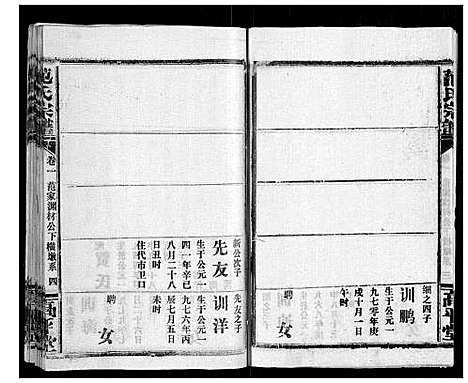 范氏宗譜
细之四子
训鹏
生于公元一
九七零年庚
戌十月一日
午时
聘
女
高平堂
范氏宗譜
卷一
范家渊材公下横墩系
四
高平堂
新公次子
先友
生于公元一
九四一年辛巳
八月二十八
日丑时
住代市卫口
先友之子
训洋
生于公元一
九七六年丙
辰七月五日
未时
聘
女